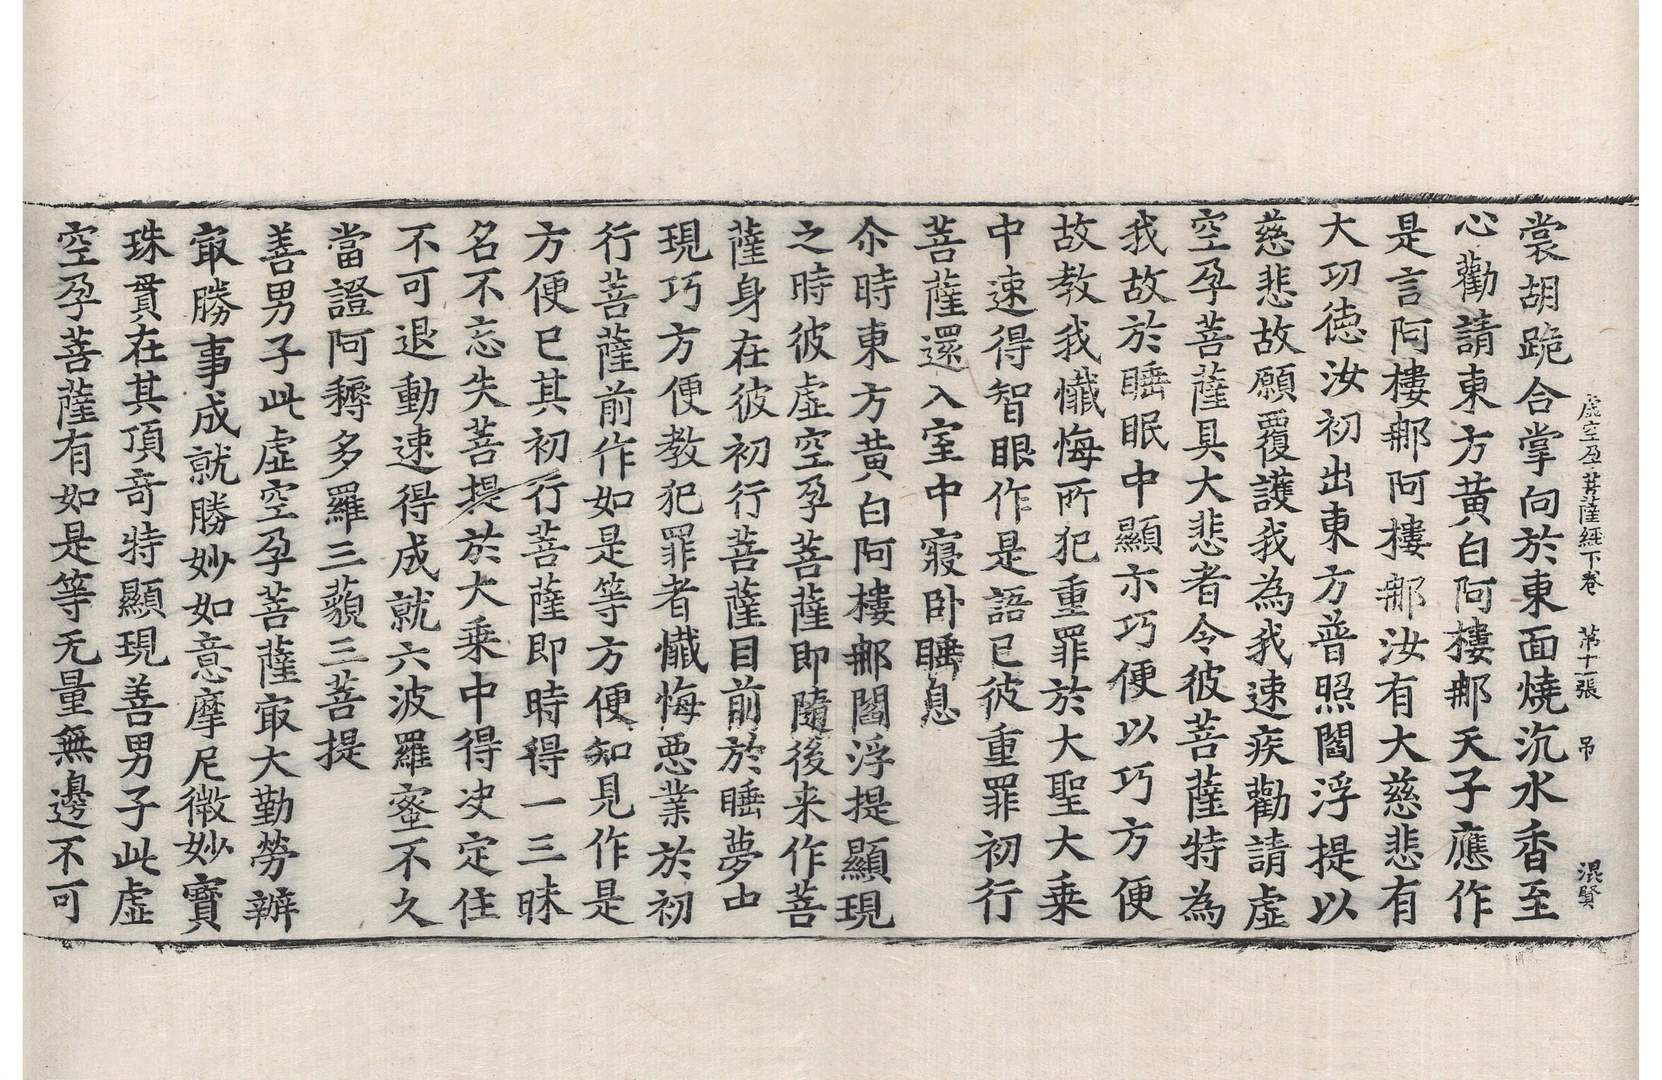 虛空孕菩薩經下卷 第十一張 吊 混賢
裳胡跪合掌向於東面燒沉水香至
心勸請東方黃白阿樓那天子應作
是言阿樓那阿樓那汝有大慈悲有
大功徳汝初出東方普照閻浮提以
慈悲故願覆護我為我速疾勸請虛
空孕菩薩具大悲者令彼菩薩特為
我故於睡眠中顯示巧便以巧方便
故教我懺悔所犯重罪於大聖大乗
中速得智眼作是語已彼重罪初行
菩薩還入室中寢卧睡息
尒時東方黃白阿樓那閻浮提顯現
之時彼虛空孕菩薩即隨後来作菩
薩身在彼初行菩薩目前於睡夢中
現巧方便教犯罪者懺悔惡業於初
行菩薩前作如是等方便知見作是
方便已其初行菩薩即時得一三昧
名不忘失菩提於大乗中得决定住
不可退動速得成就六波羅蜜不久
當證阿耨多羅三藐三菩提
善男子此虛空孕菩薩㝡大勤勞辦
㝡勝事成就勝妙如意摩尼微妙寶
珠貫在其頂竒特顯現善男子此虛
空孕菩薩有如是等无量無邊不可